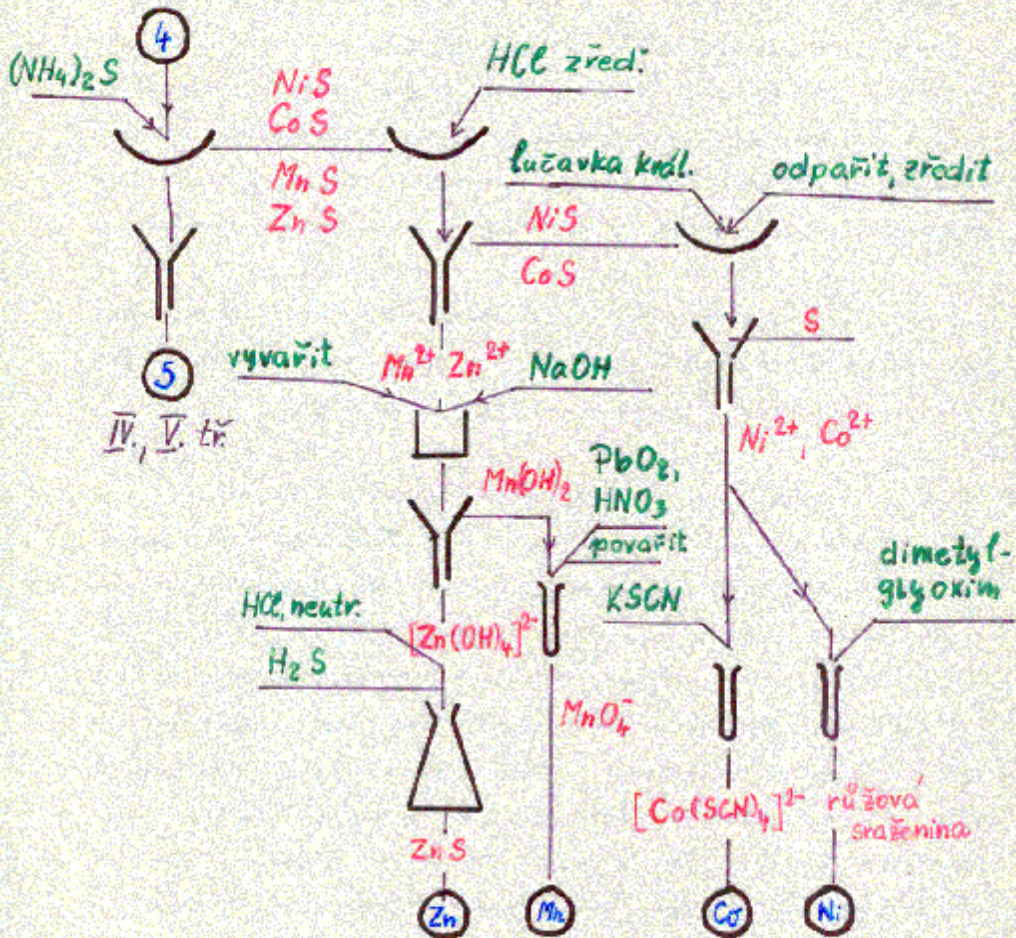 4
(NH₄)₂S
NiS
CoS
MnS
ZnS
HCl zřeď.
lučavka král.
odpařit, zředit
NiS
CoS
S
5
IV., V. tř.
vyvařit
Mn²⁺ Zn²⁺
NaOH
Ni²⁺, Co²⁺
Mn(OH)₂
PbO₂,
HNO₃
povařit
KSCN
dimetyl-
glyoxim
HCl, neutr.
[Zn(OH)₄]²⁻
H₂S
MnO₄⁻
[Co(SCN)₄]²⁻
růžová
sraženina
ZnS
Zn
Mn
Co
Ni